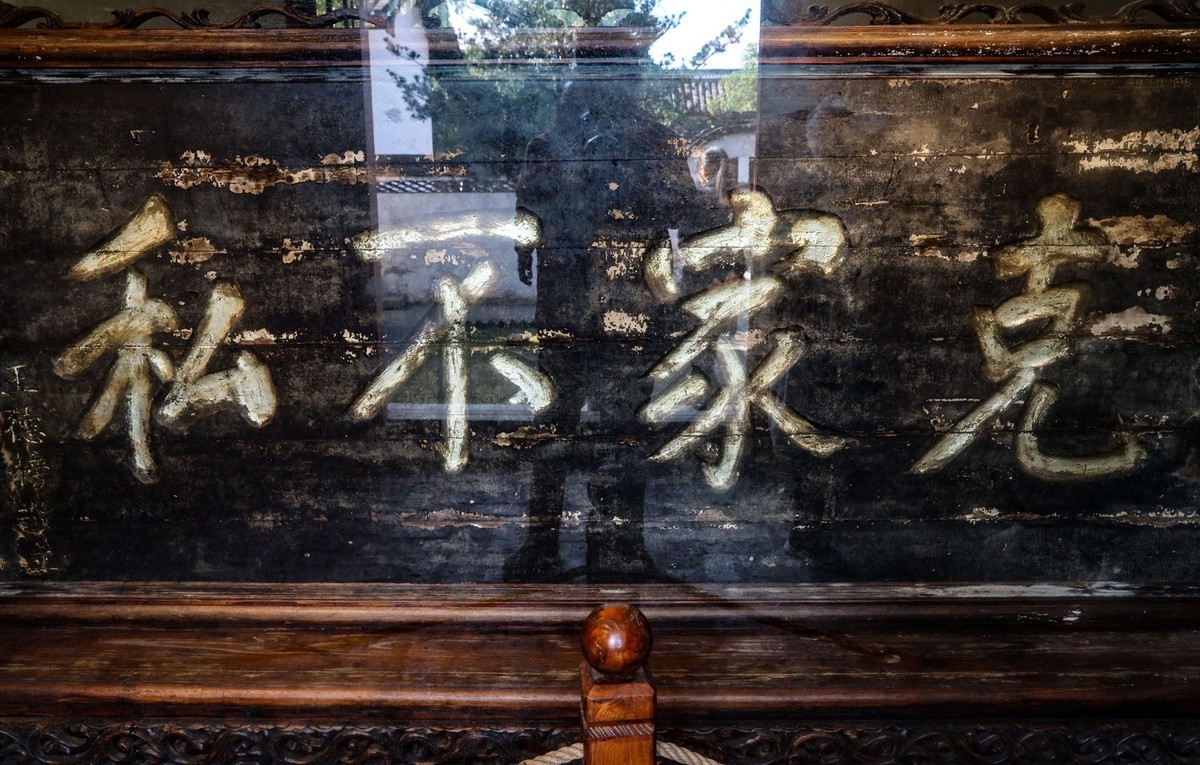 克家不私